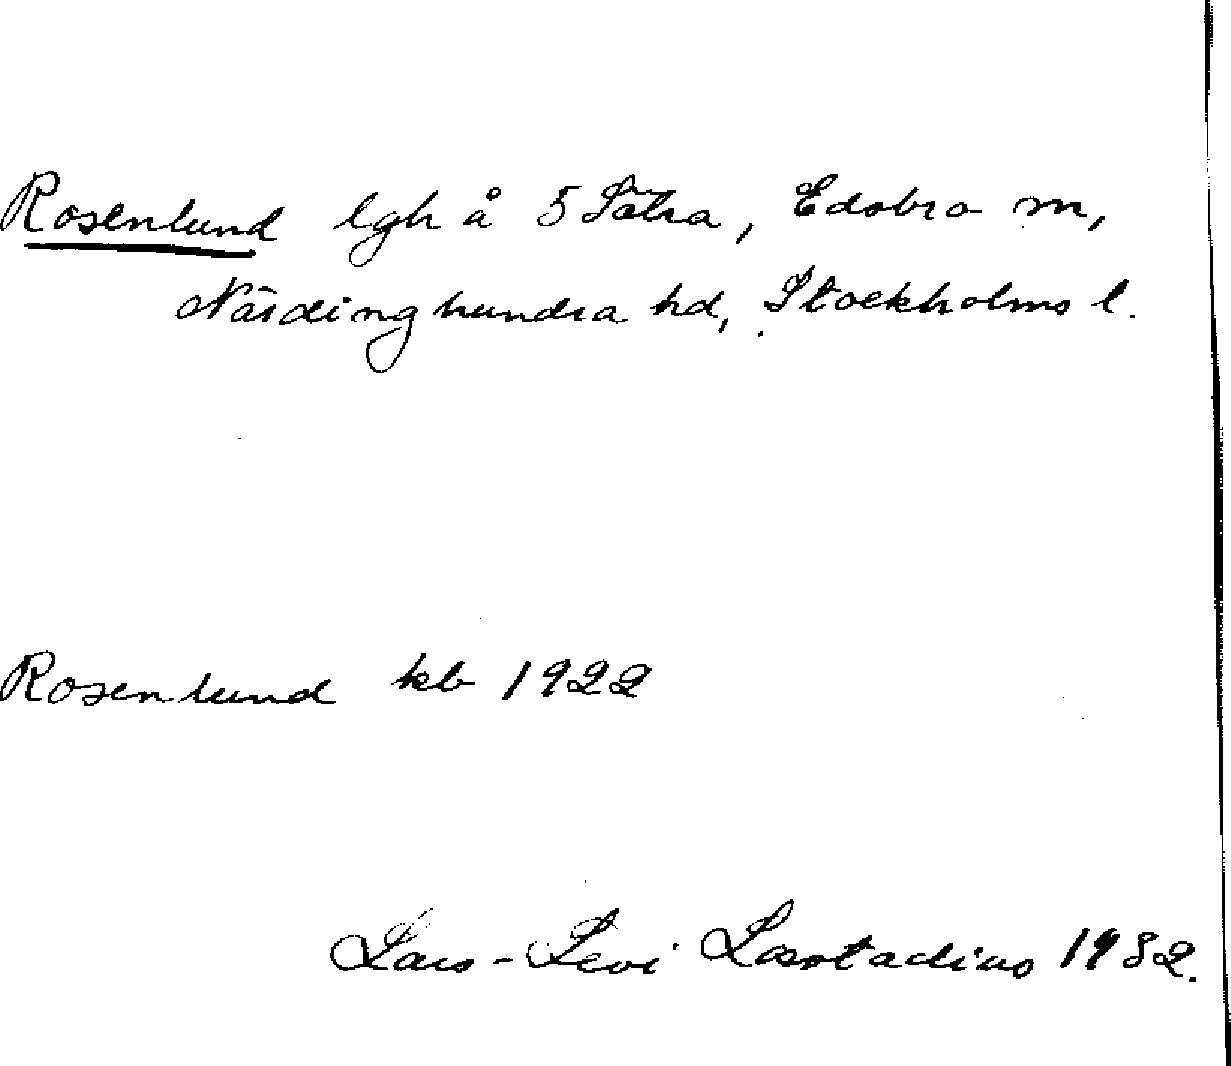 Rosenlund lgh å 5 Sätra, Edsbro sn,
Närdinghundra hd, Stockholms l.
Rosenlund kb 1922
Lars-Levi Læstadius 1932.